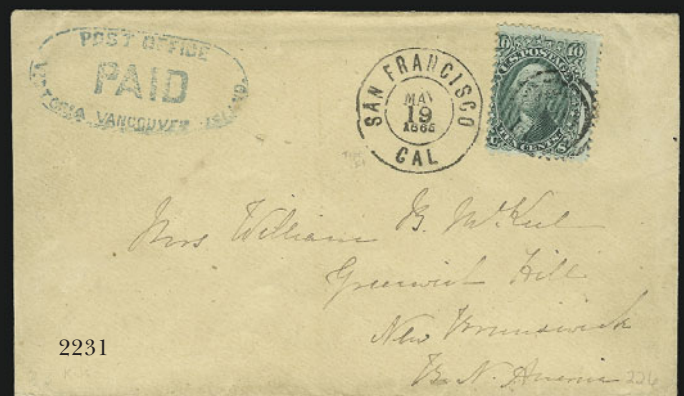 POST OFFICE
PAID
VICTORIA VANCOUVER ISLAND
SAN FRANCISCO
MAY
19
1865
CAL
10 U.S. POSTAGE 10
TEN CENTS
Mrs William B. McKeel
Greenwich Hill
New Brunswick
B. N. America
2231
226